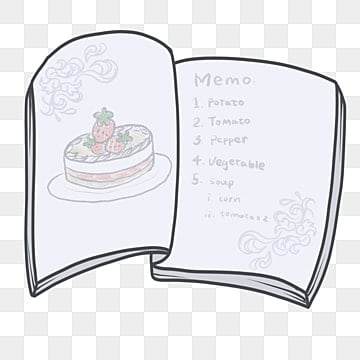 Memo
1. Potato
2. Tomato
3. Pepper
4. Vegetable
5. soup
i. corn
ii. tomatox2